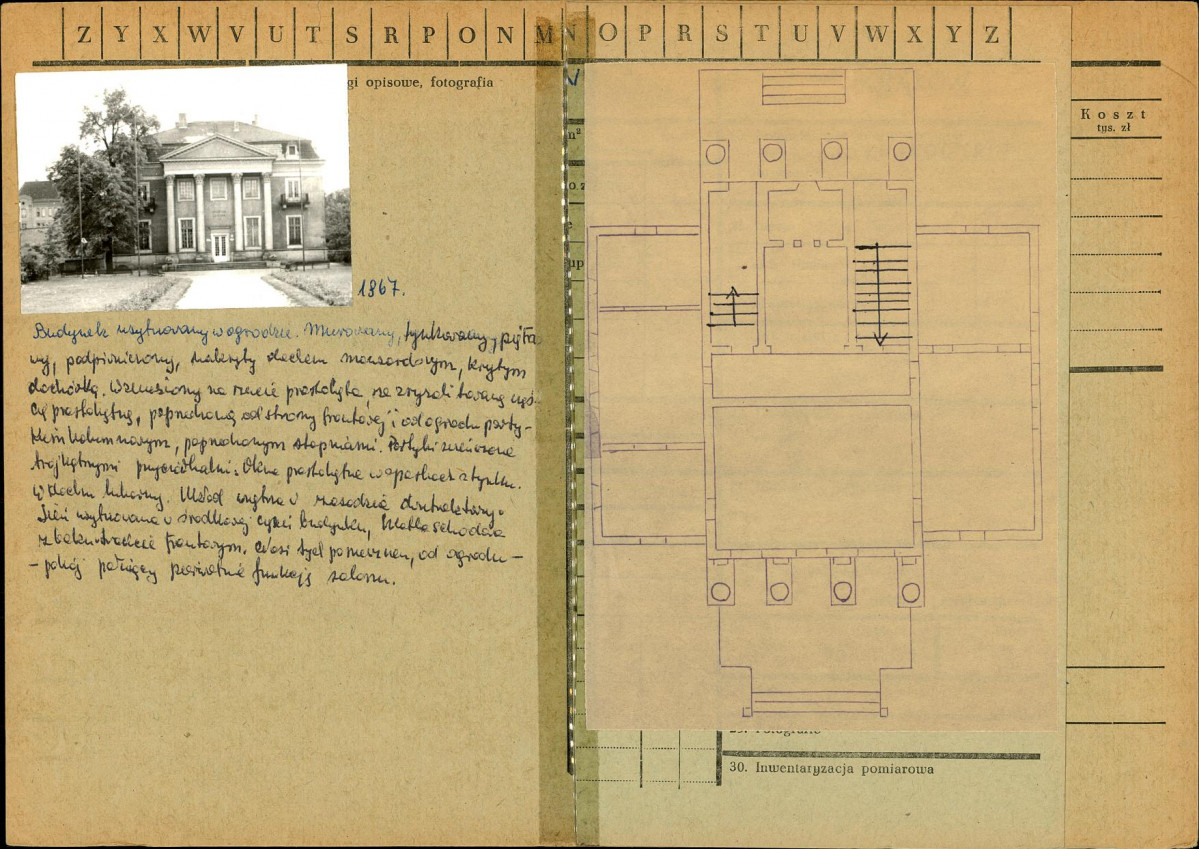 Z Y X W V U T S R P O N M N O P R S T U V W X Y Z
gi opisowe, fotografia
1867.
Budynek usytuowany w ogrodzie. Murowany, tynkowany, piętro
wy, podpiwniczony, nakryty dachem mansardowym, krytym
dachówką. Wzniesiony na rzucie prostokąta, ze zryzalitowaną częś
cią prostokątną, poprzedzoną od strony frontowej i od ogrodu porty-
kiem kolumnowym, poprzedzonym stopniami. Portyki zwieńczone
trójkątnymi. Okna prostokątne w opaskach z tynku.
W dachu lukarny. Układ wnętrz w zasadzie dwutraktowy.
Sień usytuowana w środkowej części budynku, klatka schodowa
z boku w trakcie frontowym. Od ogrodu -
- pokój pełniący pierwotnie funkcję salonu.
m²
Koszt
tys. zł
30. Inwentaryzacja pomiarowa